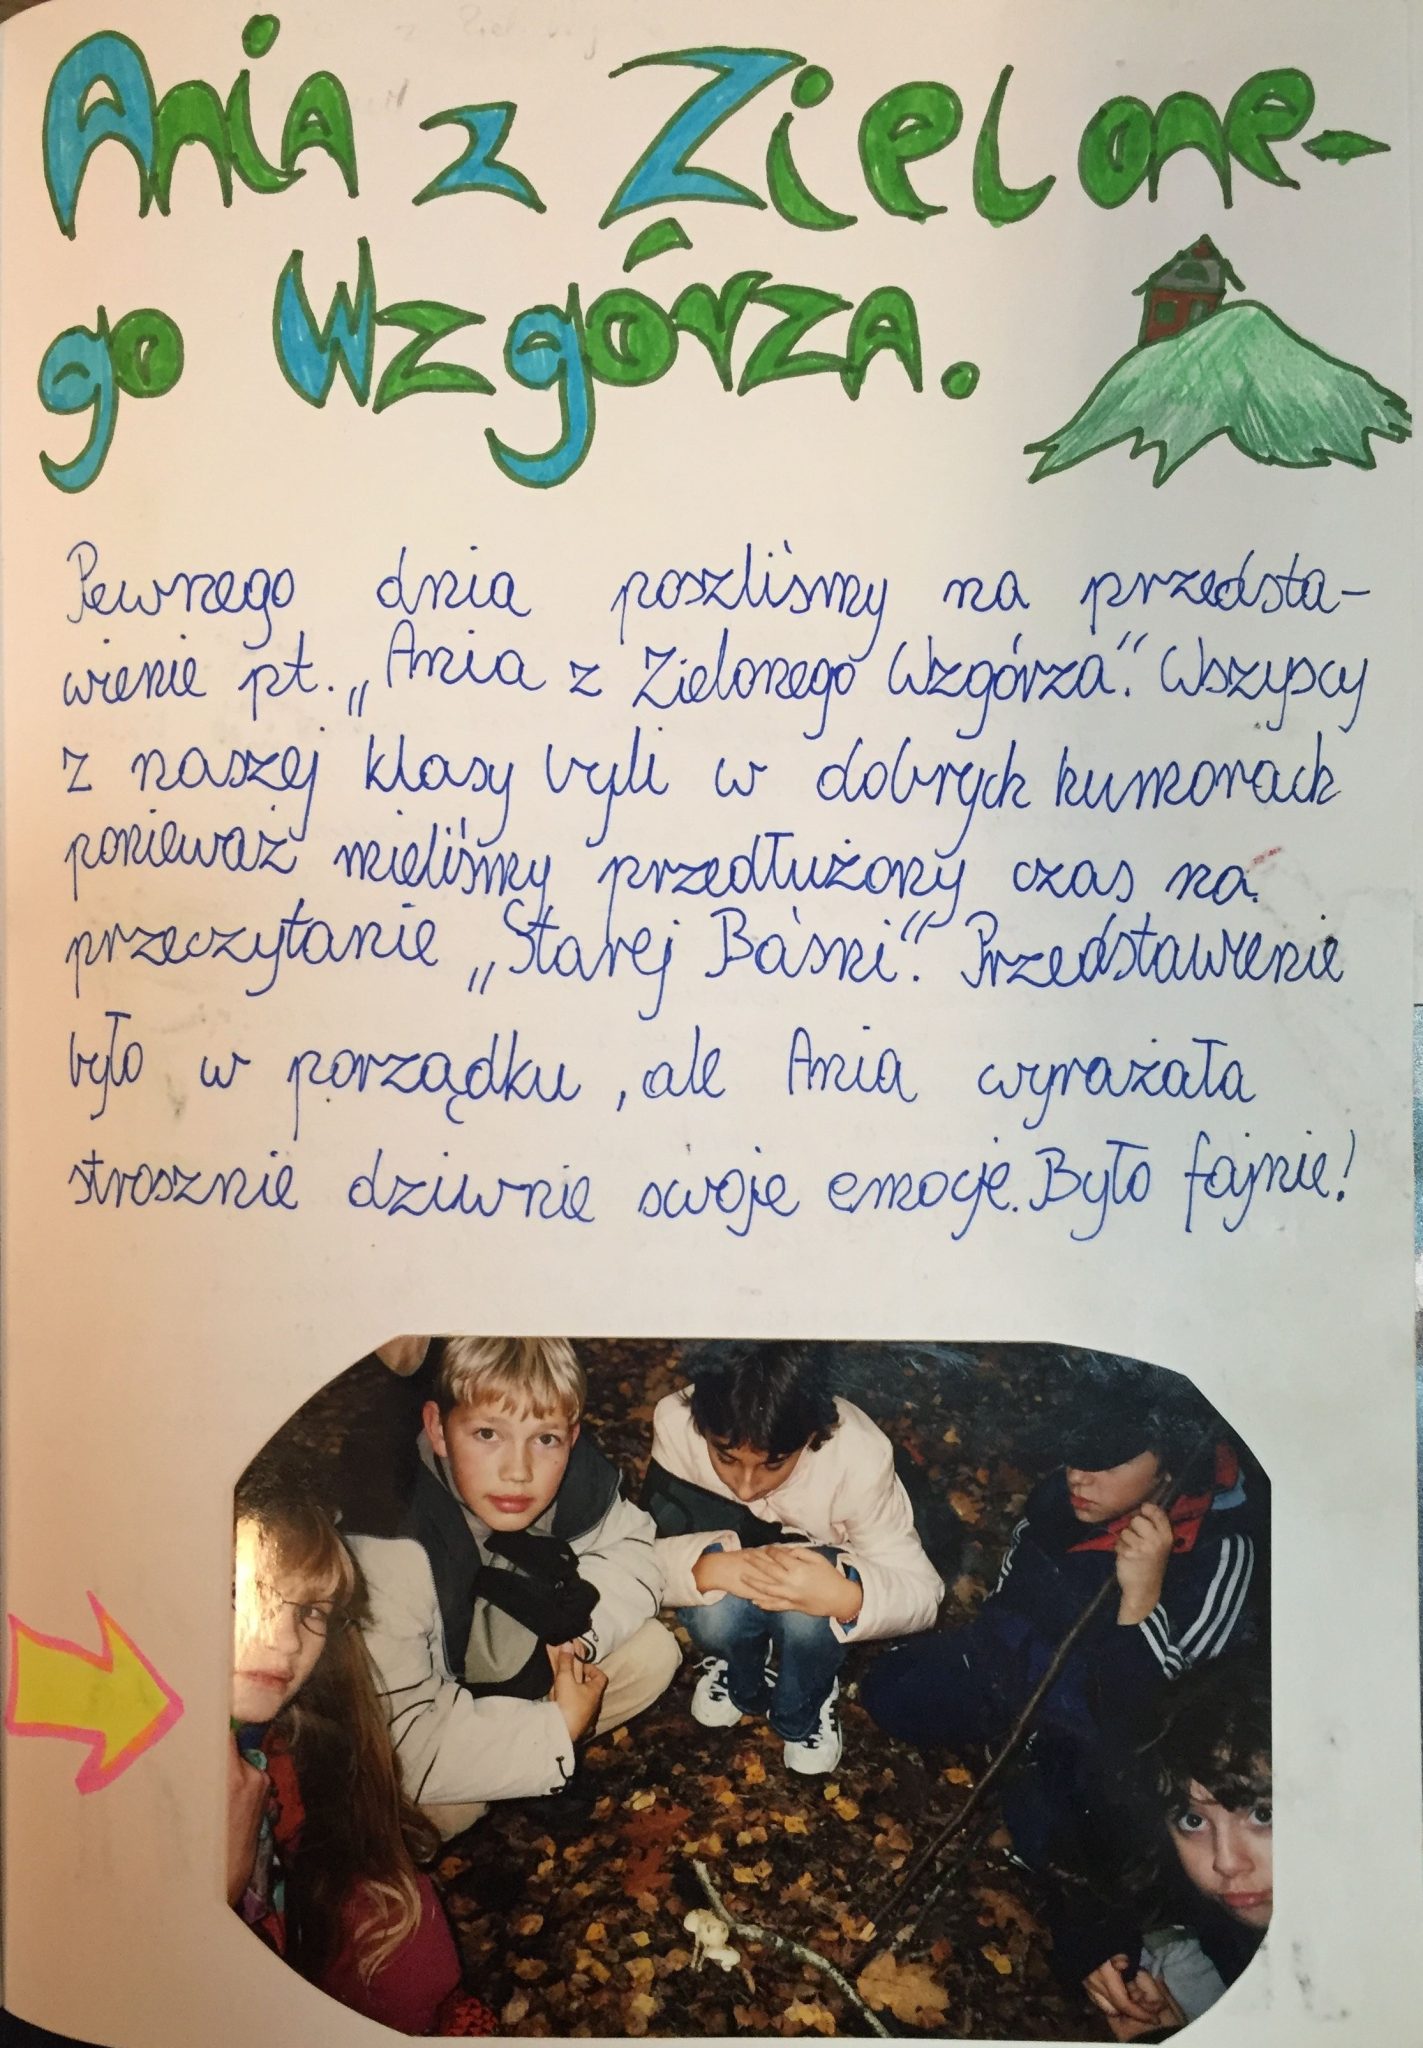 Ania z Zielone-
go Wzgórza.
Pewnego dnia poszliśmy na przedsta-
wienie pt. „Ania z Zielonego Wzgórza”. Wszyscy
z naszej klasy byli w dobrych humorach
ponieważ mieliśmy przedłużony czas na
przeczytanie „Starej Baśni”. Przedstawienie
było w porządku, ale Ania wyrażała
strasznie dziwnie swoje emocje. Było fajnie!